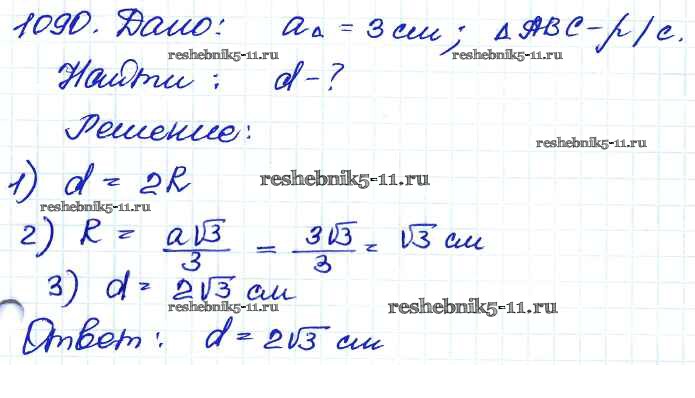 1090. Дано: a△ = 3 см; △ABC – р/с.
reshebnik5-11.ru reshebnik5-11.ru
Найти : d – ?
Решение:
reshebnik5-11.ru
1) d = 2R
reshebnik5-11.ru
reshebnik5-11.ru
2) R = a√3/3 = 3√3/3 = √3 см
3) d = 2√3 см
reshebnik5-11.ru reshebnik5-11.ru
Ответ: d = 2√3 см